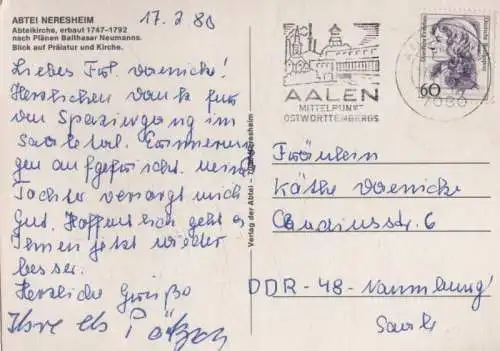 ABTEI NERESHEIM
Abteikirche, erbaut 1747–1792
nach Plänen Balthasar Neumanns.
Blick auf Prälatur und Kirche.
17. 2 80
Liebes Frl. Voenicke!
Herzlichen Dank für
den Spaziergang im
Saaletal. Erinnerun
gen aufgefrischt. Meine
Tochter versorgt mich
Gut. Hoffentlich geht es
Ihnen jetzt wieder
besser.
Herzliche Grüße
Ihre
Verlag der Abtei - 7086 Neresheim
AALEN
MITTELPUNKT
OSTWÜRTTEMBERGS
60
7080
Fräulein
Käthe Voenicke
Claudiusstr. 6
DDR - 48 - Naumburg/
Saale